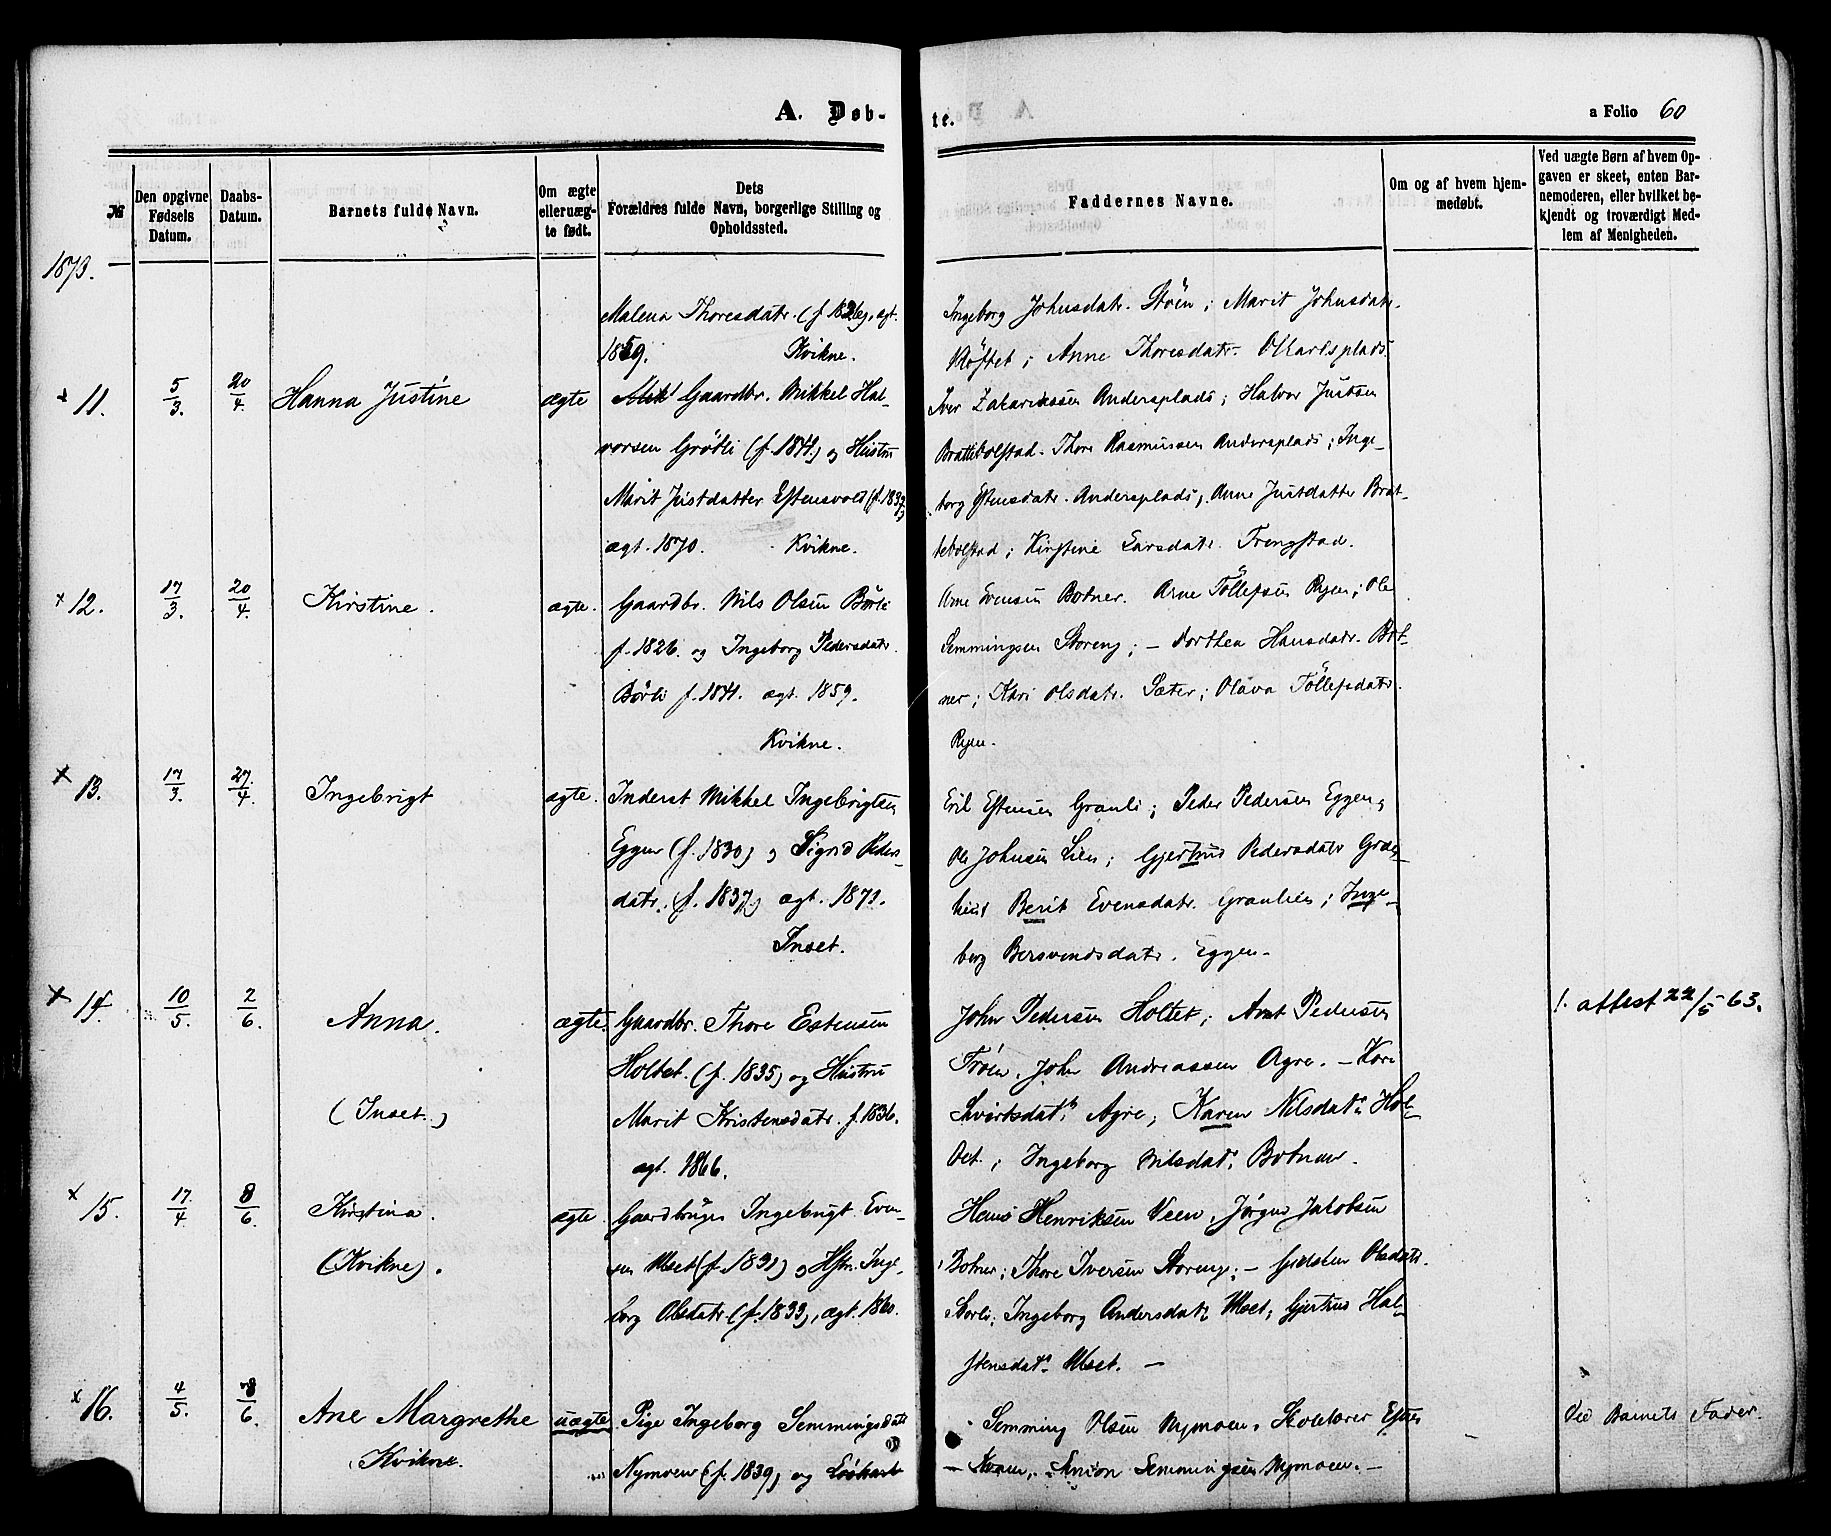 A. Døb-
te.
a Folio 60
№
Den opgivne Fødsels Datum.
Daabs-Datum.
Barnets fulde Navn.
Om ægte eller uæg-te født.
Dets Forældres fulde Navn, borgerlige Stilling og Opholdssted.
Faddernes Navne.
Om og af hvem hjem-medøbt.
Ved uægte Børn af hvem Op-gaven er skeet, enten Bar-nemoderen, eller hvilket be-kjendt og troværdigt Med-lem af Menigheden.
1873.
Malena Thoresdatr. (f. 1826), ægt.
1859. Kvikne.
Ingeborg Johnsdatr. Støen; Marit Johnsdatr.
Anne Thoresdatr.
x 11. 5/3. 20/4. Hanna Justine ægte Gaardbr. Mikkel Hal-
vorsen Grøtli (f. 1841) og Hustru
Marit Justdatter Estensvold (f. 1837)
ægt. 1870. Kvikne.
Iver Zakariassen Andersplads; Halvor Justsen
Thore Rasmussen Andersplads; Inge-
borg Estensdatr. Andersplads; Anne Justdatter Brat-
Kirstine Larsdatr. Frengstad.
x 12. 17/3. 20/4. Kirstine. ægte. Gaardbr. Nils Olsen Børli
f. 1826. og Ingeborg Pedersdatr.
Børli f. 1841. ægt. 1859.
Kvikne.
Arne Evensen Botner. Arne Tøllefsen Ryen; Ole
Semmingsen Storeng; — Dorthea Hansdatr. Bot-
ner; Kari Olsdatr. Sæter; Olava Tøllefsdatr.
Ryen.
x 13. 17/3. 27/4. Ingebrigt ægte. Inderst Mikkel Ingebrigtsen
Eggen (f. 1830) og Sigrid Peders-
datr. (f. 1837) ægt. 1873.
Inset.
Estensen Granli; Peder Pedersen Eggen;
Ole Johnsen Lien; Gjertrud Pedersdatr.
Berit Evensdatr. Granlien; Inge-
borg Bersvendsdatr. Eggen.
x 14. 10/5. 2/6. Anna. ægte. Gaardbr. Thore Estensen
Holtet. (f. 1835) og Hustru
(Inset.) Marit Kristensdatr. f. 1836.
ægt. 1866.
John Pedersen Holtet; Arnt Pedersen
Trøen, John Andreassen Agre. — Kari
Sivertsdatr. Agre; Karen Nilsdatr. Hol-
tet; Ingeborg Nilsdatr. Botner.
! attest 22/5 63.
x 15. 17/4. 8/6. Kirstina. ægte. Gaardbruger Ingebrigt Even-
sen Moet (f. 1831) og Hstr. Inge-
(Kvikne). borg Olsdatr. (f. 1833), ægt. 1860.
Hans Henriksen Veen, Jørgen Jakobsen
Botner; Thore Iversen Storeng; — Olsdatr.
Storli; Ingeborg Andersdatr. Moet; Gjertrud Hal-
stensdatr. Moet. —
x 16. 4/5. 8/6. Ane Margrethe uægte Pige Ingeborg Semmingsdatr.
Kvikne. Nymoen (f. 1839) og
Semming Olsen Nymoen. Skolelærer
— Simon Semmingsen Nymoen. —
Ved Barnets Fader.